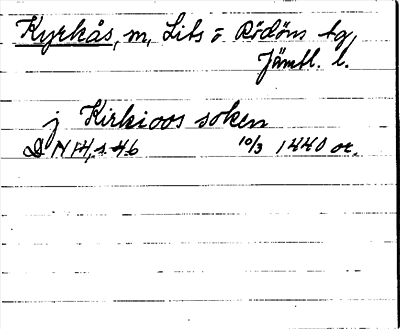 Kyrkås, m, Lits o Rödöns tg
Jämtl. l.
j Kirkioos soken
DN 14, s. 46 10/3 1440 or.